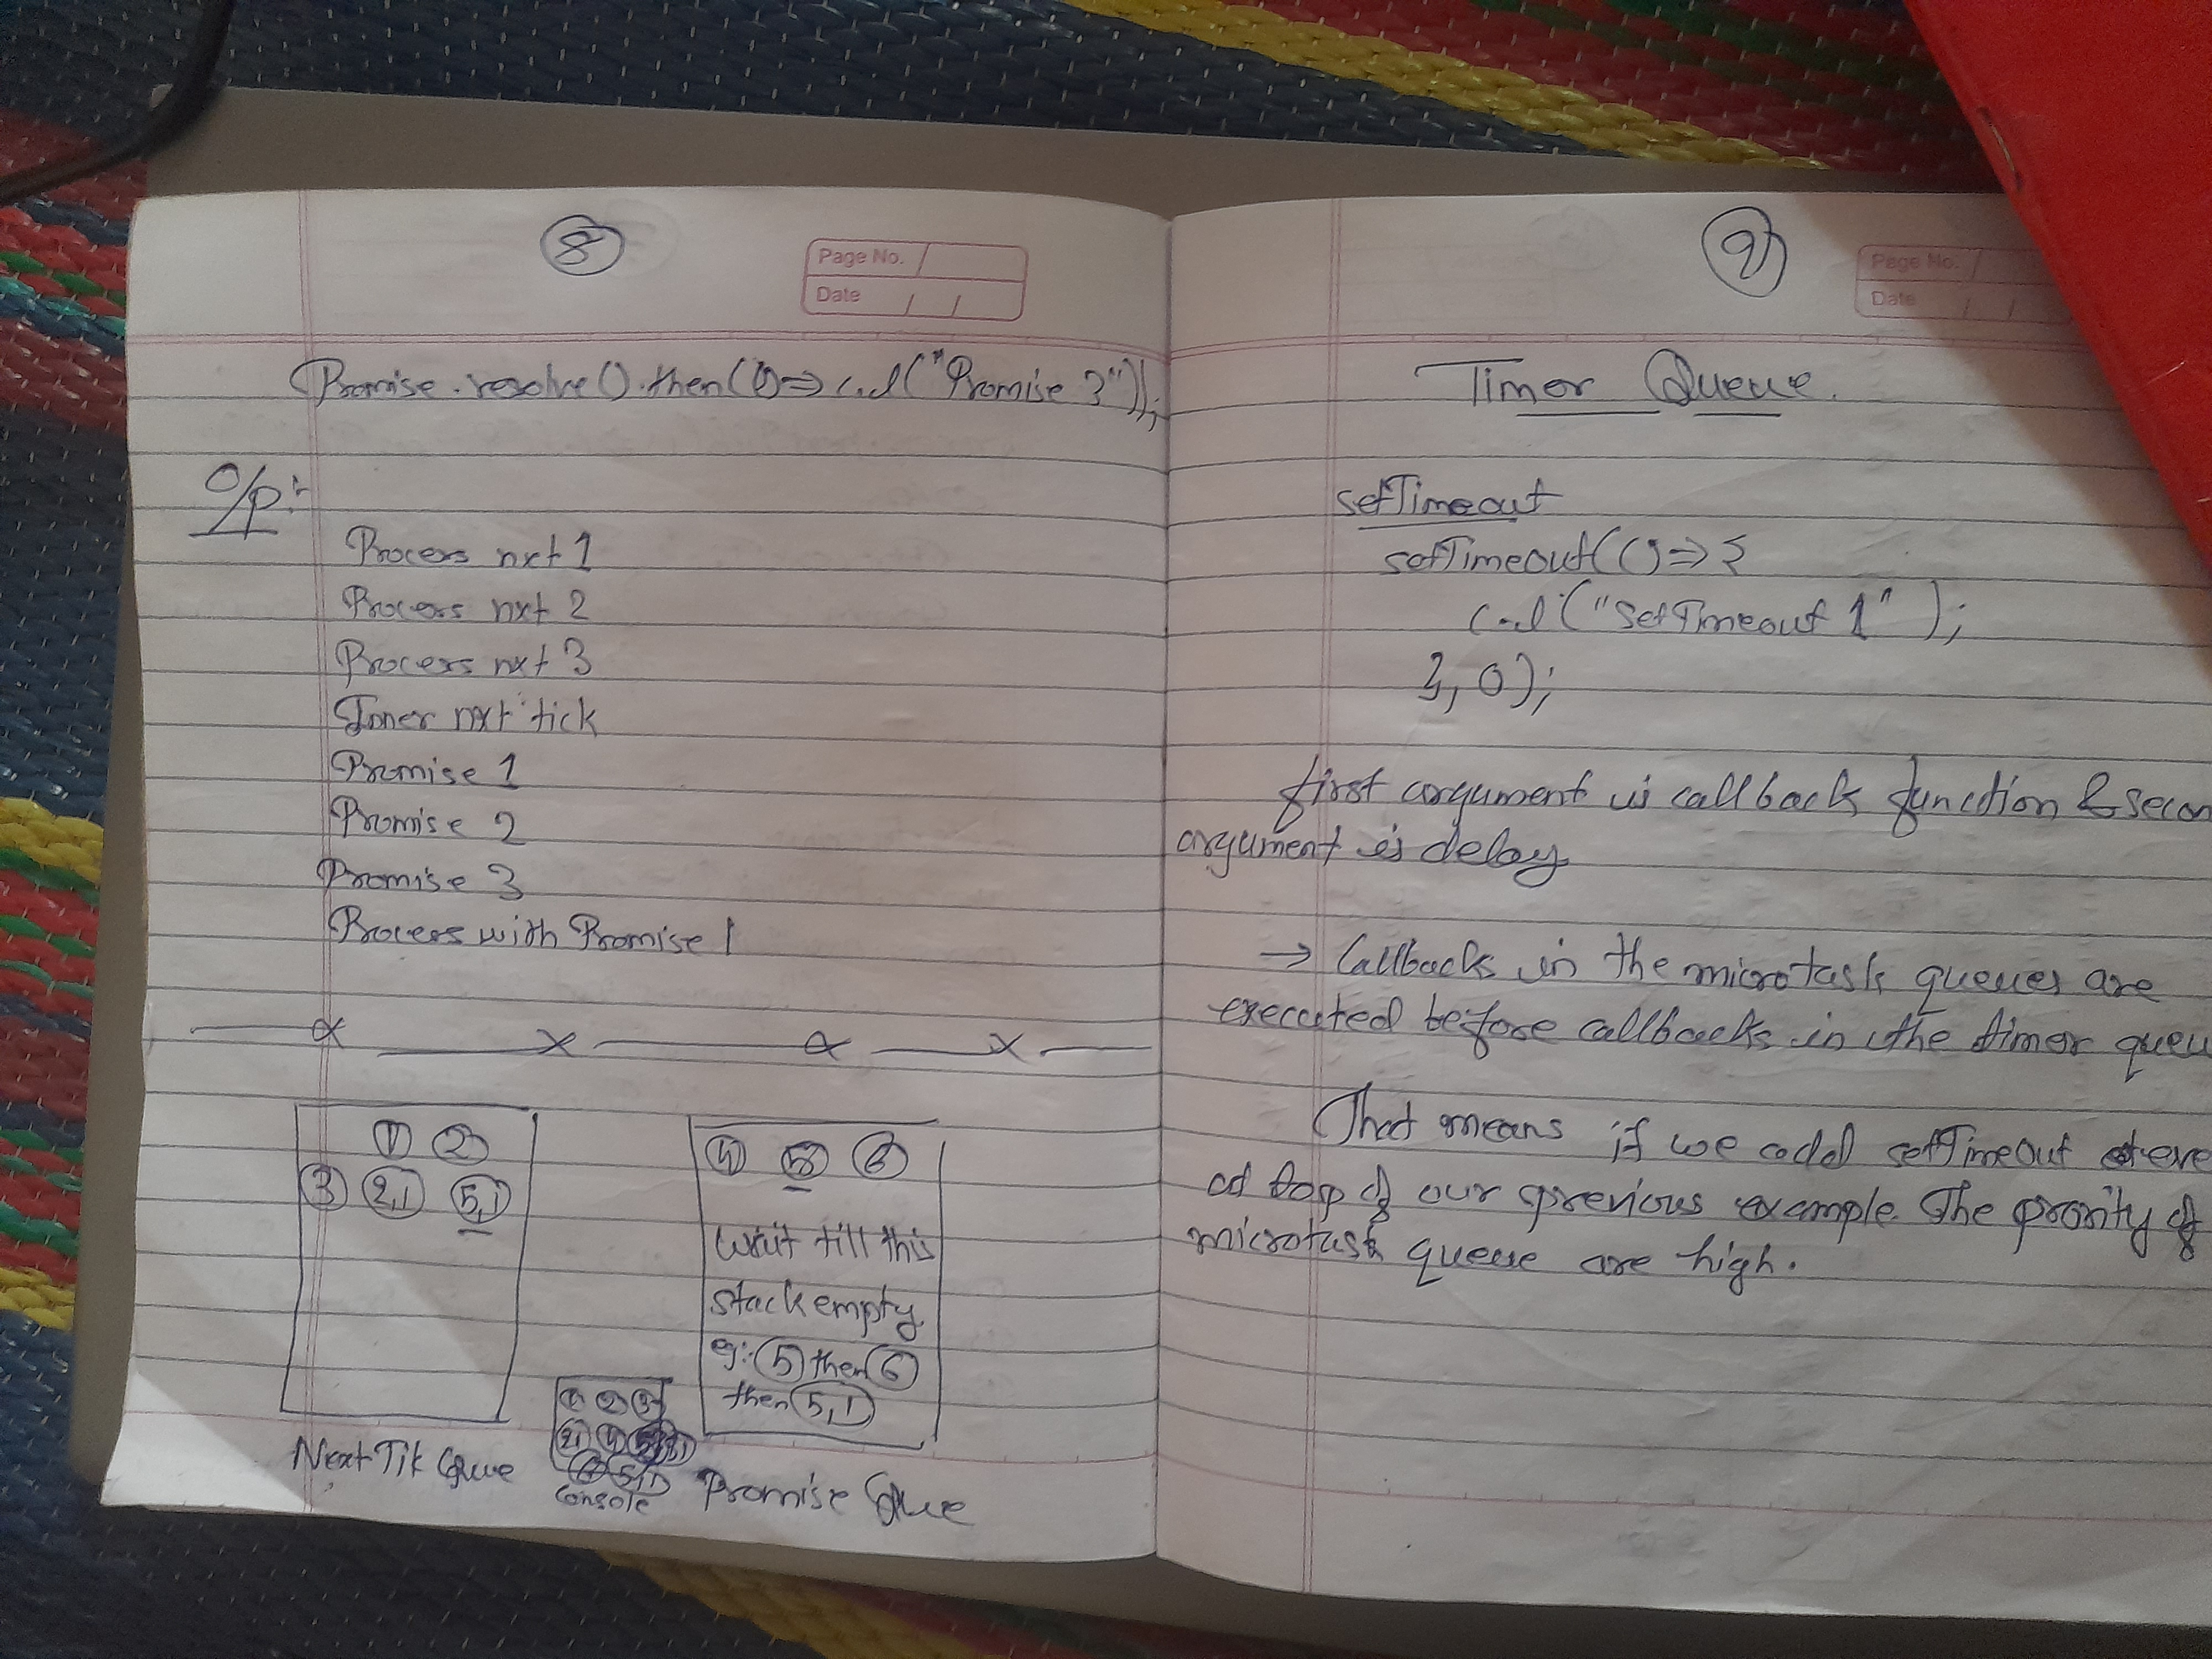 8
Page No.
Date / /
Promise.resolve().then(()=> c.l("Promise 3"));
O/P:-
Process nxt 1
Process nxt 2
Process nxt 3
Inner nxt tick
Promise 1
Promise 2
Promise 3
Process with Promise 1
1 2
3 2,1 5,1
Next Tik Queue
4 5 6
wait till this
stack empty.
eg:- 5 then 6
then 5,1
Promise Queue
1 2 3
2,1 4
6 5,1
Console
9
Page No.
Date / /
Timer Queue.
setTimeout
setTimeout(()=> {
c.l("SetTimeout 1");
}, 0);
first argument is callback function & secon
argument is delay
→ Callbacks in the microtask queues are
executed before callbacks in the timer queu
That means if we add setTimeout
at top of our previous example. The prority of
microtask queue are high.